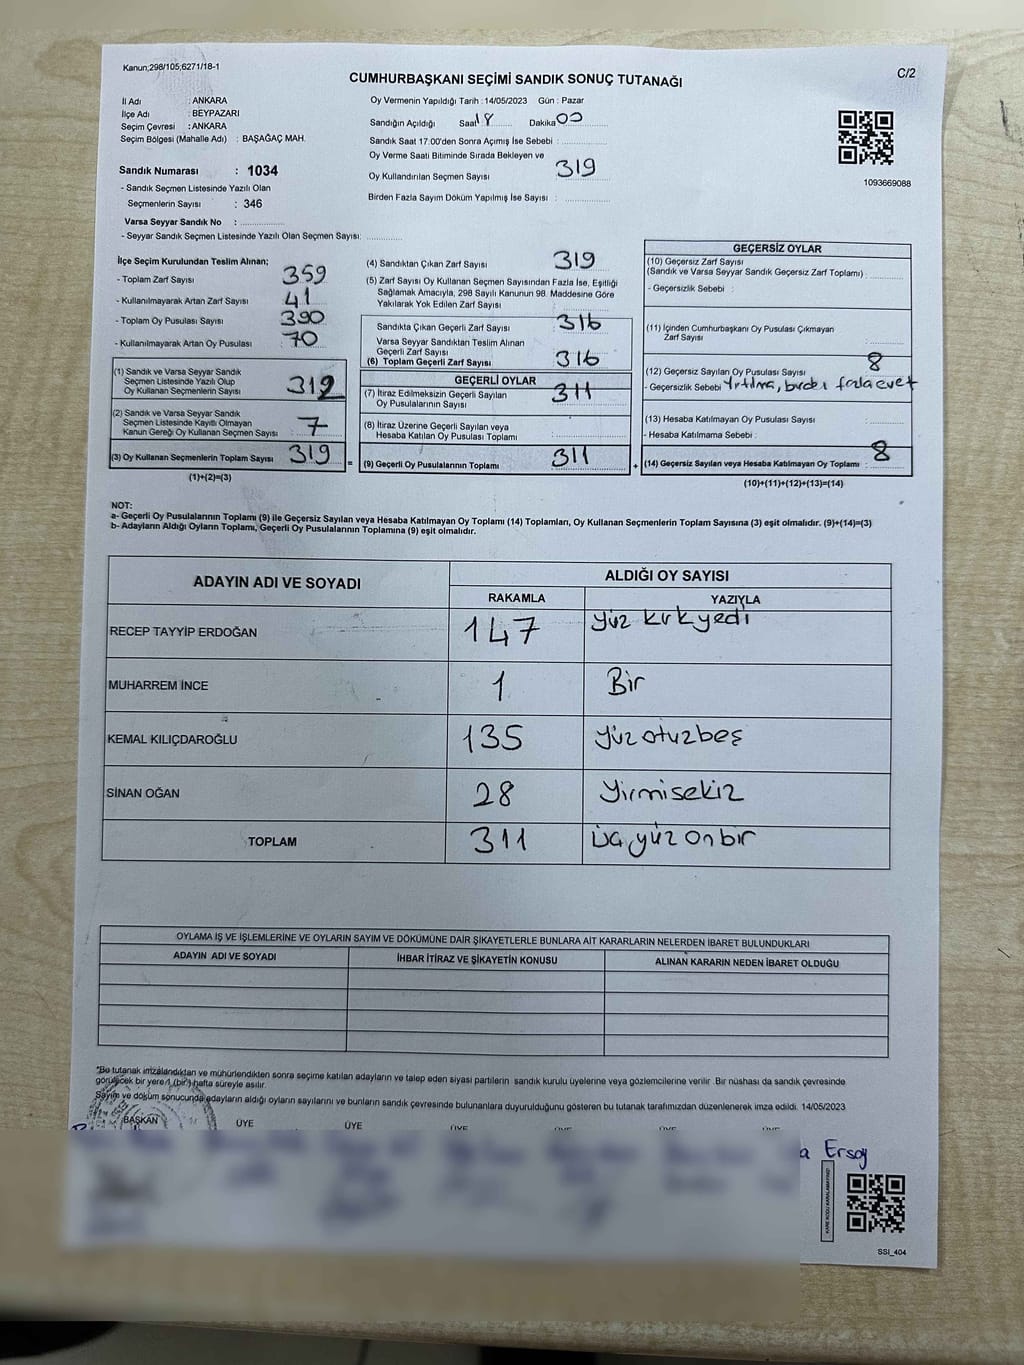 Kanun;298/105;6271/18-1
CUMHURBAŞKANI SEÇİMİ SANDIK SONUÇ TUTANAĞI
C/2
İl Adı : ANKARA
İlçe Adı : BEYPAZARI
Seçim Çevresi : ANKARA
Seçim Bölgesi (Mahalle Adı) : BAŞAĞAÇ MAH.
Sandık Numarası : 1034
- Sandık Seçmen Listesinde Yazılı Olan
Seçmenlerin Sayısı : 346
Varsa Seyyar Sandık No :
- Seyyar Sandık Seçmen Listesinde Yazılı Olan Seçmen Sayısı:
Oy Vermenin Yapıldığı Tarih : 14/05/2023 Gün : Pazar
Sandığın Açıldığı Saat 18 Dakika 00
Sandık Saat 17:00'den Sonra Açımış İse Sebebi :
Oy Verme Saati Bitiminde Sırada Bekleyen ve
Oy Kullandırılan Seçmen Sayısı 319
Birden Fazla Sayım Döküm Yapılmış İse Sayısı :
1093669088
İlçe Seçim Kurulundan Teslim Alınan;
- Toplam Zarf Sayısı 359
- Kullanılmayarak Artan Zarf Sayısı 41
- Toplam Oy Pusulası Sayısı 390
- Kullanılmayarak Artan Oy Pusulası 70
(1) Sandık ve Varsa Seyyar Sandık
Seçmen Listesinde Yazılı Olup
Oy Kullanan Seçmenlerin Sayısı 312
(2) Sandık ve Varsa Seyyar Sandık
Seçmen Listesinde Kayıtlı Olmayan
Kanun Gereği Oy Kullanan Seçmen Sayısı 7
(3) Oy Kullanan Seçmenlerin Toplam Sayısı 319
(1)+(2)=(3)
(4) Sandıktan Çıkan Zarf Sayısı 319
(5) Zarf Sayısı Oy Kullanan Seçmen Sayısından Fazla İse, Eşitliği
Sağlamak Amacıyla, 298 Sayılı Kanunun 98. Maddesine Göre
Yakılarak Yok Edilen Zarf Sayısı
Sandıkta Çıkan Geçerli Zarf Sayısı 316
Varsa Seyyar Sandıktan Teslim Alınan
Geçerli Zarf Sayısı
(6) Toplam Geçerli Zarf Sayısı 316
GEÇERLİ OYLAR
(7) İtiraz Edilmeksizin Geçerli Sayılan
Oy Pusulalarının Sayısı 311
(8) İtiraz Üzerine Geçerli Sayılan veya
Hesaba Katılan Oy Pusulası Toplamı
= (9) Geçerli Oy Pusulalarının Toplamı 311 +
GEÇERSİZ OYLAR
(10) Geçersiz Zarf Sayısı
(Sandık ve Varsa Seyyar Sandık Geçersiz Zarf Toplamı)
- Geçersizlik Sebebi :
(11) İçinden Cumhurbaşkanı Oy Pusulası Çıkmayan
Zarf Sayısı
(12) Geçersiz Sayılan Oy Pusulası Sayısı 8
- Geçersizlik Sebebi Yırtılma, birden fazla evet
(13) Hesaba Katılmayan Oy Pusulası Sayısı
- Hesaba Katılmama Sebebi :
(14) Geçersiz Sayılan veya Hesaba Katılmayan Oy Toplamı : 8
(10)+(11)+(12)+(13)=(14)
NOT:
a- Geçerli Oy Pusulalarının Toplamı (9) ile Geçersiz Sayılan veya Hesaba Katılmayan Oy Toplamı (14) Toplamları, Oy Kullanan Seçmenlerin Toplam Sayısına (3) eşit olmalıdır. (9)+(14)=(3)
b- Adayların Aldığı Oyların Toplamı, Geçerli Oy Pusulalarının Toplamına (9) eşit olmalıdır.
ADAYIN ADI VE SOYADI ALDIĞI OY SAYISI
RAKAMLA YAZIYLA
RECEP TAYYİP ERDOĞAN 147 yüz kırkyedi
MUHARREM İNCE 1 Bir
KEMAL KILIÇDAROĞLU 135 yüzotuzbeş
SİNAN OĞAN 28 Yirmisekiz
TOPLAM 311 üçyüz onbir
OYLAMA İŞ VE İŞLEMLERİNE VE OYLARIN SAYIM VE DÖKÜMÜNE DAİR ŞİKAYETLERLE BUNLARA AİT KARARLARIN NELERDEN İBARET BULUNDUKLARI
ADAYIN ADI VE SOYADI İHBAR İTİRAZ VE ŞİKAYETİN KONUSU ALINAN KARARIN NEDEN İBARET OLDUĞU
*Bu tutanak imzalandıktan ve mühürlendikten sonra seçime katılan adayların ve talep eden siyasi partilerin sandık kurulu üyelerine veya gözlemcilerine verilir. Bir nüshası da sandık çevresinde
görülecek bir yere 1 (bir) hafta süreyle asılır.
Sayım ve döküm sonucunda adayların aldığı oyların sayılarını ve bunların sandık çevresinde bulunanlara duyurulduğunu gösteren bu tutanak tarafımızdan düzenlenerek imza edildi. 14/05/2023
BAŞKAN ÜYE ÜYE ÜYE ÜYE ÜYE ÜYE
a Ersoy
KARE KODU KARALAMAYINIZ!
SSI_404